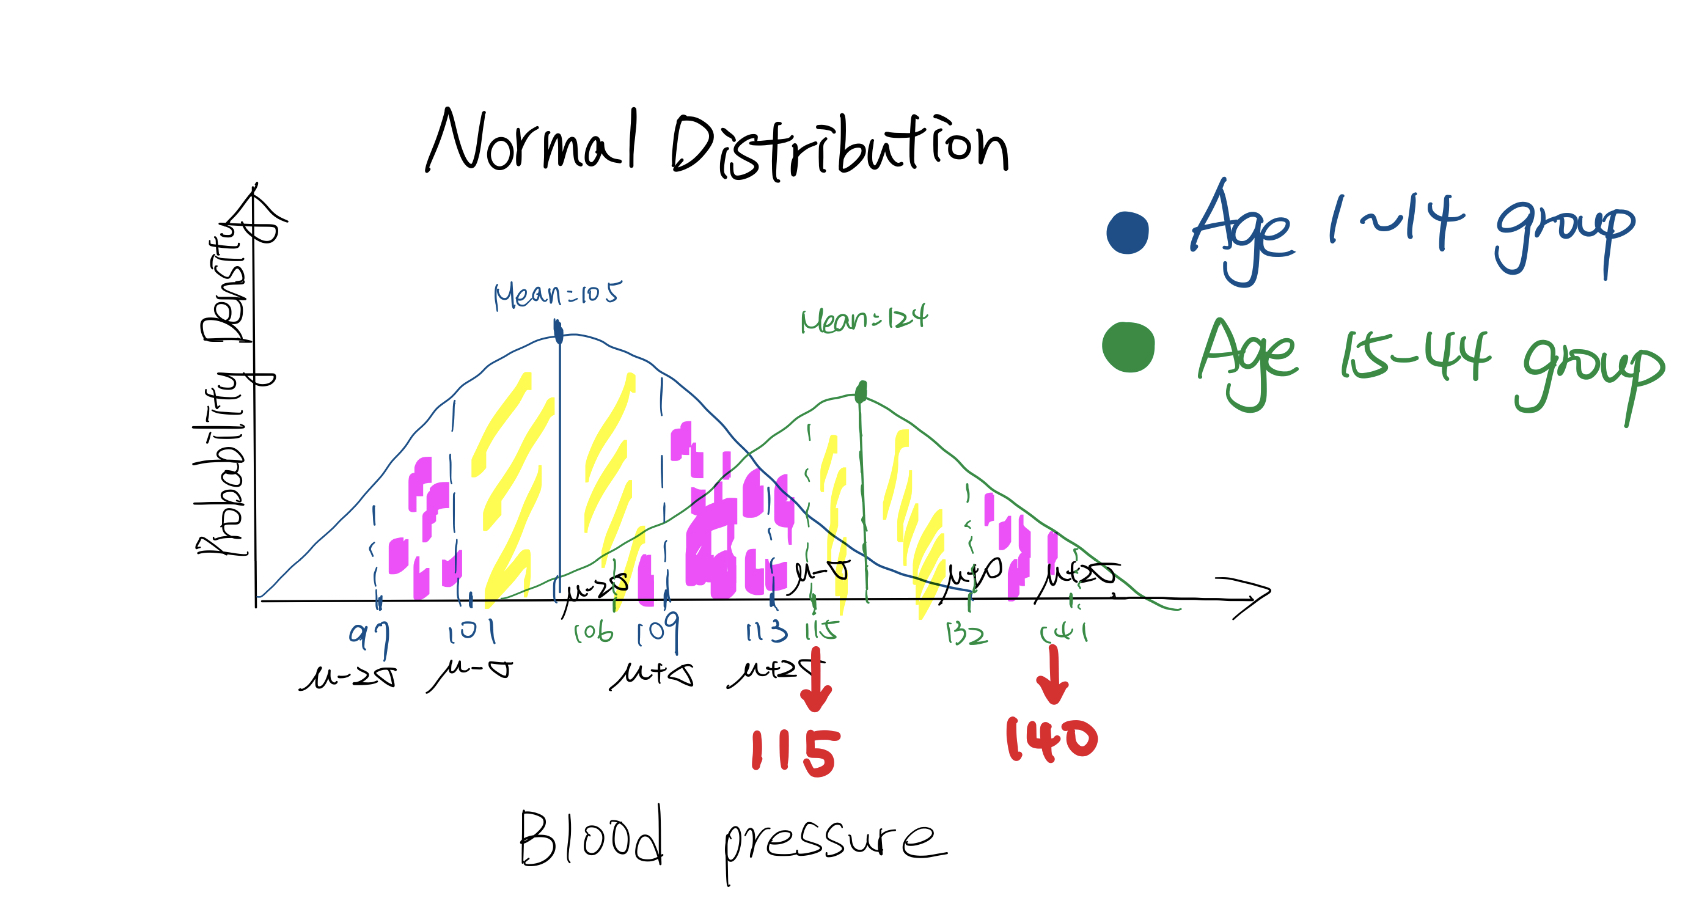 Normal Distribution
Age 1~14 group
Age 15-44 group
Probability Density
Mean=105
Mean=124
μ-2σ
μ-σ
μ+σ
μ+2σ
97
101
106
109
113
115
132
141
μ-2σ
μ-σ
μ+σ
μ+2σ
115
140
Blood pressure